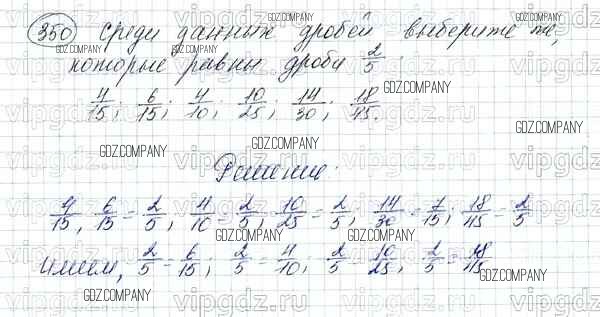 350 Среди данных дробей выберите те,
которые равны дроби 2/5 :
4/15; 6/15; 4/10; 10/25; 14/30; 18/45.
Решение:
4/15, 6/15 = 2/5; 4/10 = 2/5; 10/25 = 2/5; 14/30 = 7/15; 18/45 = 2/5
Имеем, 2/5 = 6/15; 2/5 = 4/10; 2/5 = 10/25; 2/5 = 18/45
GDZ.COMPANY
vipgdz.ru